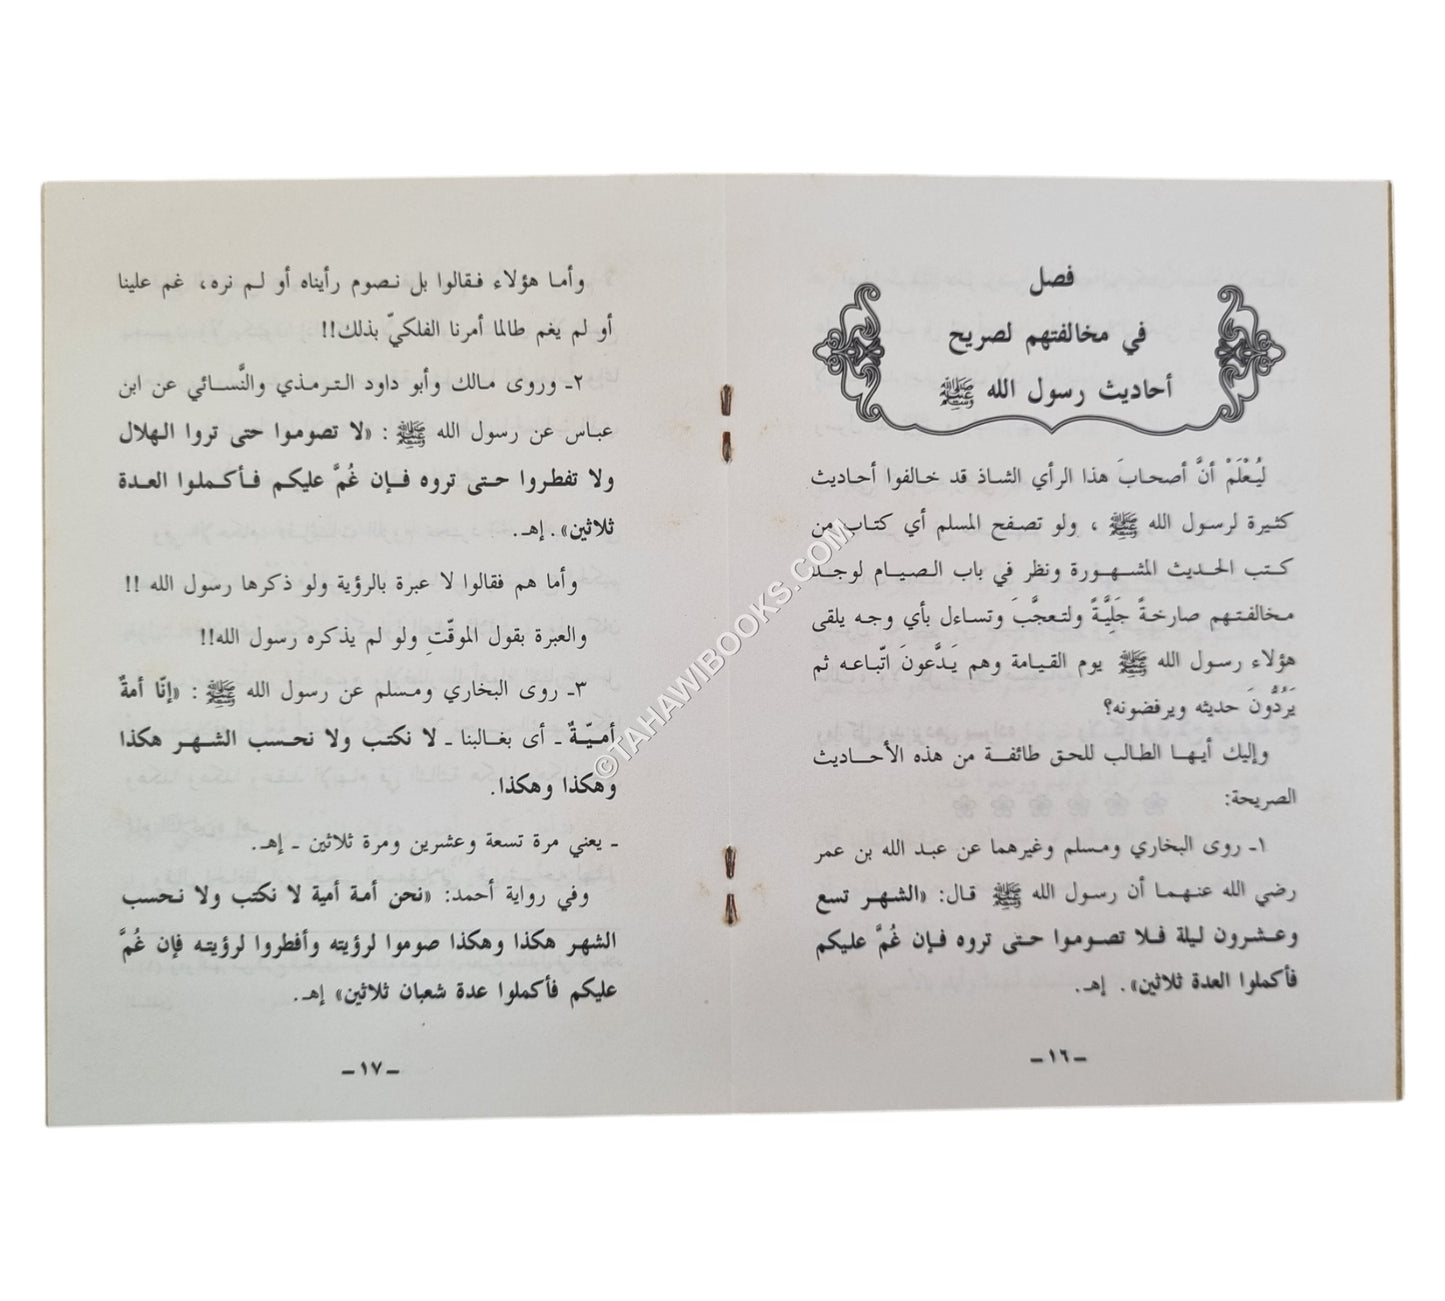 فصل
في مخالفتهم لصريح
أحاديث رسول الله ﷺ
لِيُعْلَمْ أنَّ أصحابَ هذا الرأي الشاذ قد خالفوا أحاديث
كثيرة لرسول الله ﷺ ، ولو تصفح المسلم أي كتاب من
كتب الحديث المشهورة ونظر في باب الصيام لوجد
مخالفتهم صارخةً جَلِيَّةً ولتعجَّبَ وتساءل بأي وجه يلقى
هؤلاء رسول الله ﷺ يوم القيامة وهم يَدَّعونَ اتّباعه ثم
يَرُدُّونَ حديثه ويرفضونه؟
وإليك أيها الطالب للحق طائفة من هذه الأحاديث
الصريحة:
١ـ روى البخاري ومسلم وغيرهما عن عبد الله بن عمر
رضي الله عنهما أن رسول الله ﷺ قال: «الشهر تسع
وعشرون ليلة فلا تصوموا حتى تروه فإن غُمَّ عليكم
فأكملوا العدة ثلاثين». إهـ.
ـ ١٦ ـ
وأما هؤلاء فقالوا بل نصوم رأيناه أو لم نره، غم علينا
أو لم يغم طالما أمرنا الفلكيّ بذلك!!
٢ـ وروى مالك وأبو داود الترمذي والنَّسائي عن ابن
عباس عن رسول الله ﷺ : «لا تصوموا حتى تروا الهلال
ولا تفطروا حتى تروه فإن غُمَّ عليكم فأكملوا العدة
ثلاثين». إهـ.
وأما هم فقالوا لا عبرة بالرؤية ولو ذكرها رسول الله !!
والعبرة بقول الموقّتِ ولو لم يذكره رسول الله!!
٣ـ روى البخاري ومسلم عن رسول الله ﷺ : «إنّا أمةٌ
أميّةٌ ـ أى بغالبنا ـ لا نكتب ولا نحسب الشهر هكذا
وهكذا وهكذا.
ـ يعني مرة تسعة وعشرين ومرة ثلاثين ـ إهـ.
وفي رواية أحمد: «نحن أمة أمية لا نكتب ولا نحسب
الشهر هكذا وهكذا صوموا لرؤيته وأفطروا لرؤيته فإن غُمَّ
عليكم فأكملوا عدة شعبان ثلاثين» إهـ.
ـ ١٧ ـ
©TAHAWIBOOKS.COM